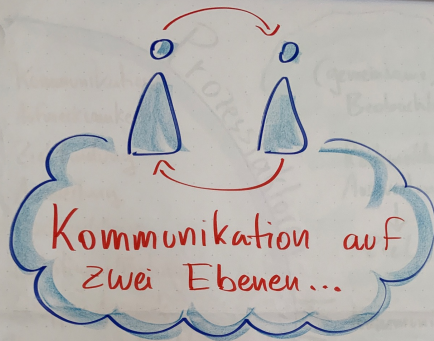 Kommunikation auf
zwei Ebenen...